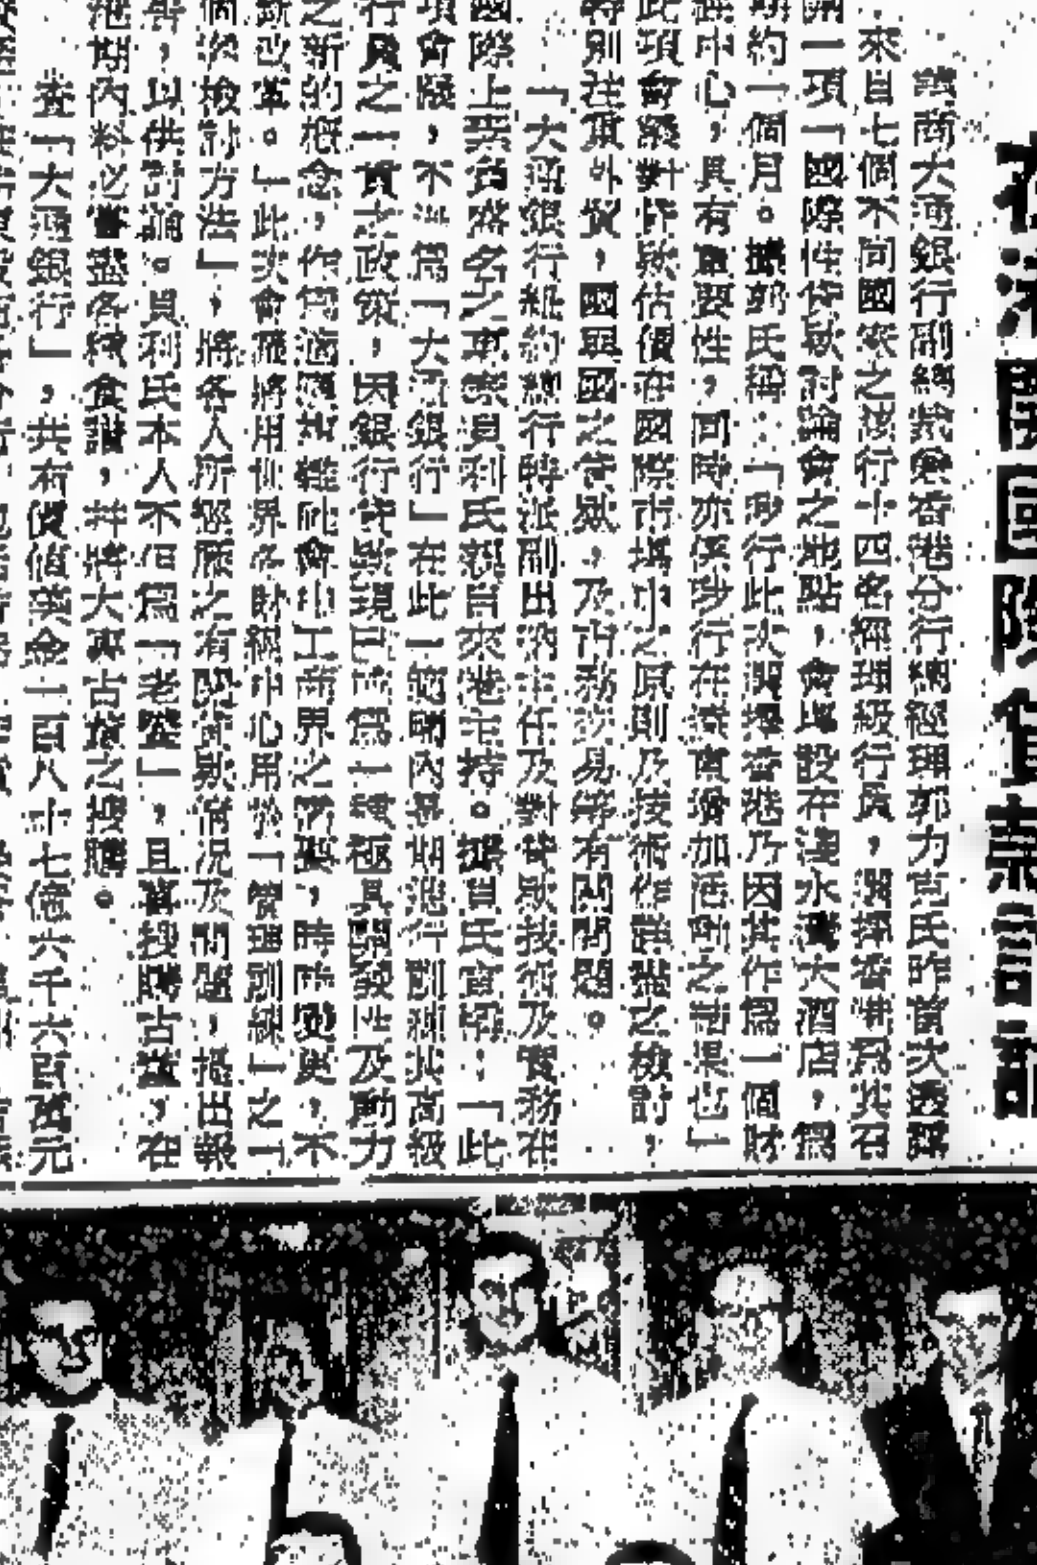 在港開國際信貸討
美商大通銀行副總裁兼香港分行總經理郭力克氏昨首次透露
來自七個不同國家之該行十四名經理級行員，選擇香港為其召
開一項「國際性貸款討論會之地點，會塲設在淺水灣大酒店，為
期約一個月。據郭氏稱：「敝行此次選擇香港乃因其作為一個財
經中心，具有重要性，同時亦係涉行在業實增加活動之結果也」
此項會議對貸款估價在國際市塲中之原則及技術作詳盡之檢討，
特別注重外貿，國與國之貸款，及市務交易等有關問題。
「大通銀行紐約總行特派副出納主任及對貸款技術及實務在
國際上具負盛名之專家貝利氏親自來港主持。據貝氏宣稱：「此
項會議，不只為「大通銀行」在此一範圍內長期進行訓練其高級
行員之一貫之政策，因銀行貸款現已成為一積極具開發性及動力
之新的概念，作為適應複雜社會中工商界之需要，時時變更，不
斷改革。」此次會議將用世界各財經中心用於「管理訓練」之「
個案檢討方法」，將各人所經歷之有關貸款情况及問題，提出報
告，以供討論。貝利氏本人不但為「老饕」，且喜搜購古董，在
港期內料必嘗盡各種食譜，并將大事古董之搜購。
查「大通銀行」，共有資值美金一百八十七億六千六百萬元